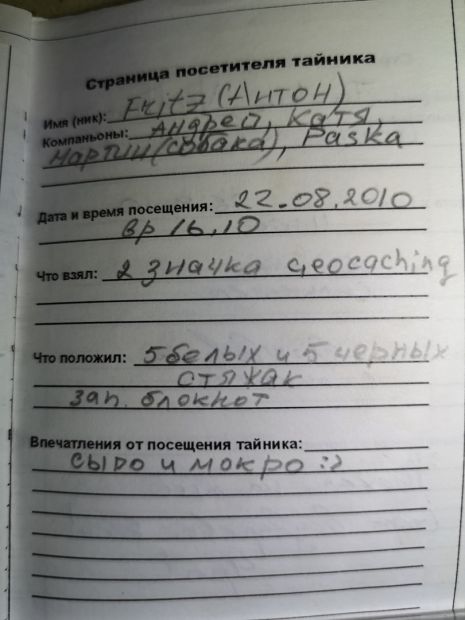 Страница посетителя тайника
Имя (ник): Fritz (Антон)
Компаньоны: Андрей, Катя,
Мартин (собака), Paska
Дата и время посещения: 22.08.2010
вр 16.10
Что взял: 2 значка geocaching
Что положил: 5 белых и 5 черных
стяжак
зап. блокнот
Впечатления от посещения тайника:
сыро и мокро :)